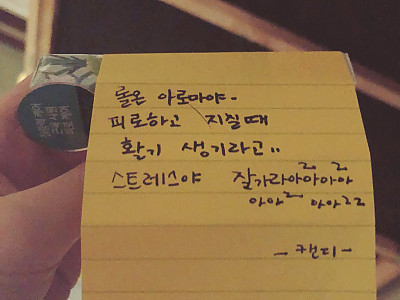 롤온 아로마야~
피로하고 지칠때
활기 생기라고..
스트레스야 잘가라아아아아
아아 아아
- 캔디 -